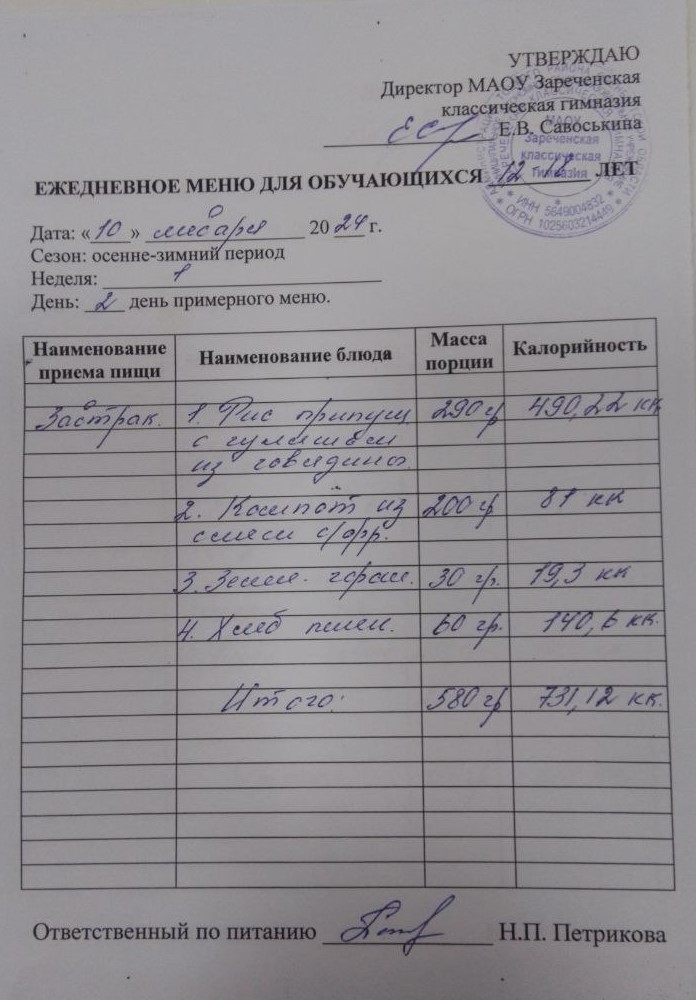 УТВЕРЖДАЮ
Директор МАОУ Зареченская
классическая гимназия
Е.В. Савоськина
МАОУ
Зареченская
классическая
гимназия
ИНН 5649004832
ОГРН 1025603214449
ЕЖЕДНЕВНОЕ МЕНЮ ДЛЯ ОБУЧАЮЩИХСЯ 12-18 ЛЕТ
Дата: «10» января 2024 г.
Сезон: осенне-зимний период
Неделя: 1
День: 2 день примерного меню.
Наименование приема пищи Наименование блюда Масса порции Калорийность
Завтрак. 1. Рис припущ. 290 гр 490,22 кк
с гуляшом
из говядины.
2. Компот из 200 гр 81 кк
смеси с/фр.
3. Зелен. горош. 30 гр. 19,3 кк
4. Хлеб пшен. 60 гр. 140,6 кк.
Итого: 580 гр 731,12 кк.
Ответственный по питанию Н.П. Петрикова